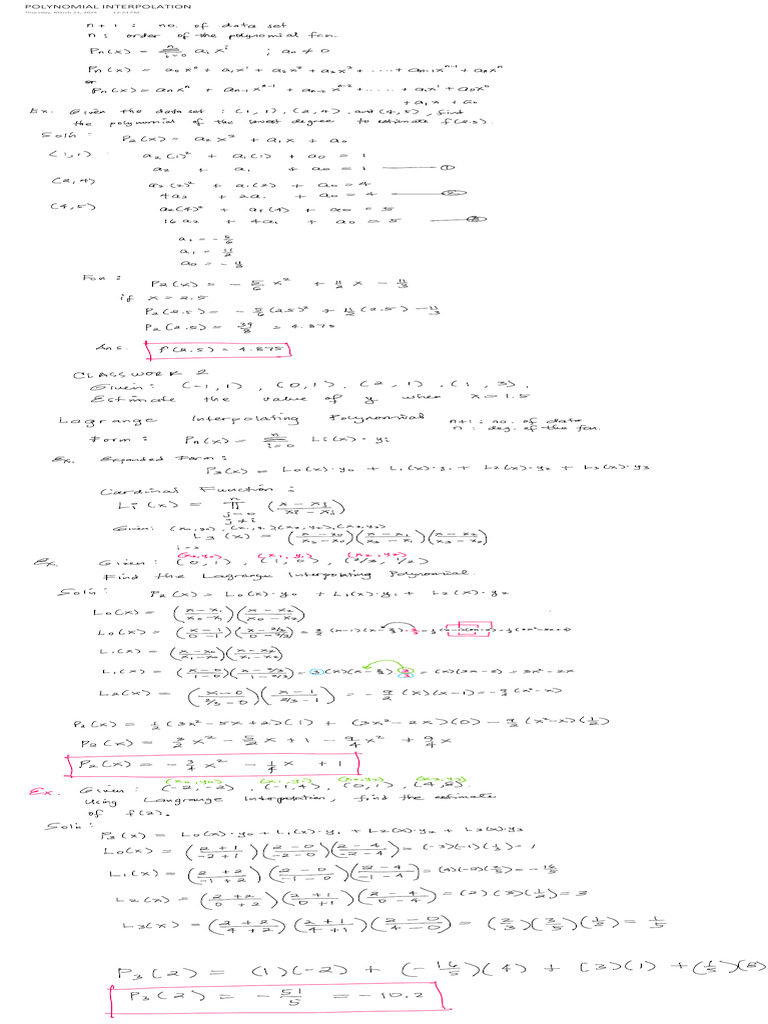 POLYNOMIAL INTERPOLATION
Thursday, March 21, 2024 12:33 PM
n + 1 : no. of data set
n : order of the polynomial fcn.
Pn(x) = Σ i=0 n ai x^i ; an ≠ 0
Pn(x) = a0x^0 + a1x^1 + a2x^2 + a3x^3 + ..... + an-1x^n-1 + anx^n
or
Pn(x) = anx^n + an-1x^n-1 + an-2x^n-2 + ..... + a1x^1 + a0x^0
+ a1x + a0
Ex. Given the data set : (1,1), (2,4), and (4,5), find
the polynomial of the lowest degree to estimate f(2.5).
Soln : P2(x) = a2x^2 + a1x + a0
(1,1) : a2(1)^2 + a1(1) + a0 = 1
a2 + a1 + a0 = 1 ①
(2,4) a2(2)^2 + a1(2) + a0 = 4
4a2 + 2a1 + a0 = 4 ②
(4,5) a2(4)^2 + a1(4) + a0 = 5
16a2 + 4a1 + a0 = 5 ③
= - 5/6
a1 = 11/2
a0 = - 11/3
Fcn : P2(x) = - 5/6 x^2 + 11/2 x - 11/3
if x = 2.5
P2(2.5) = - 5/6 (2.5)^2 + 11/2 (2.5) - 11/3
P2(2.5) = 39/8 = 4.875
Ans. f(2.5) = 4.875
CLASSWORK 2
Given : (-1,1) , (0,1) , (2,1) , (1,3).
Estimate the value of y when x = 1.5
Lagrange Interpolating Polynomial n+1 : no. of data
n : deg. of the fcn.
Form : Pn(x) = Σ i=0 n Li(x) · yi
Ex. Expanded Form :
P3(x) = L0(x)·y0 + L1(x)·y1 + L2(x)·y2 + L3(x)·y3
Cardinal Function :
Li(x) = Π j=0 j≠i n ((x - xj)/(xi - xj))
Given : (x0,y0), (x1,y1)(x2,y2),(x3,y3)
L3(x) = ((x - x0)/(x3 - x0))((x - x1)/(x3 - x1))((x - x2)/(x3 - x2))
(x0,y0) (x1,y1) (x2,y2)
Ex. Given : (0,1) , (1,0) , (2/3, 1/2)
Find the Lagrange Interpolating Polynomial.
Soln : P2(x) = L0(x)·y0 + L1(x)·y1 + L2(x)·y2
L0(x) = ((x - x1)/(x0 - x1))((x - x2)/(x0 - x2))
L0(x) = ((x - 1)/(0 - 1))((x - 2/3)/(0 - 2/3)) = 3/2 (x-1)(x - 2/3)
L1(x) = ((x - x0)/(x1 - x0))((x - x2)/(x1 - x2))
L1(x) = ((x - 0)/(1 - 0))((x - 2/3)/(1 - 2/3)) = 3(x)(x - 2/3) · 3/3 = (x)(3x - 2) = 3x^2 - 2x
L2(x) = ((x - 0)/(2/3 - 0))((x - 1)/(2/3 - 1)) = - 9/2 (x)(x-1) = - 9/2 (x^2 - x)
P2(x) = 1/2 (3x^2 - 5x + 2)(1) + (3x^2 - 2x)(0) - 9/2 (x^2 - x)(1/2)
P2(x) = 3/2 x^2 - 5/2 x + 1 - 9/4 x^2 + 9/4 x
P2(x) = - 3/4 x^2 - 1/4 x + 1
(x0,y0) (x1,y1) (x2,y2) (x3,y3)
Ex. Given : (-2,-2) , (-1,4) , (0,1) , (4,8).
Using Langrange Interpolation, find the estimate
of f(2).
Soln : P3(x) = L0(x)·y0 + L1(x)·y1 + L2(x)·y2 + L3(x)·y3
L0(x) = ((2 + 1)/(-2 + 1))((2 - 0)/(-2 - 0))((2 - 4)/(-2 - 4)) = (-3)(-1)(1/3) = 1
L1(x) = ((2 + 2)/(-1 + 2))((2 - 0)/(-1 - 0))((2 - 4)/(-1 - 4)) = (4)(-2)(2/5) = - 16/5
L2(x) = ((2 + 2)/(0 + 2))((2 + 1)/(0 + 1))((2 - 4)/(0 - 4)) = (2)(3)(1/2) = 3
L3(x) = ((2 + 2)/(4 + 2))((2 + 1)/(4 + 1))((2 - 0)/(4 - 0)) = (2/3)(3/5)(1/2) = 1/5
P3(2) = (1)(-2) + (- 16/5)(4) + (3)(1) + (1/5)(8)
P3(2) = - 51/5 = - 10.2